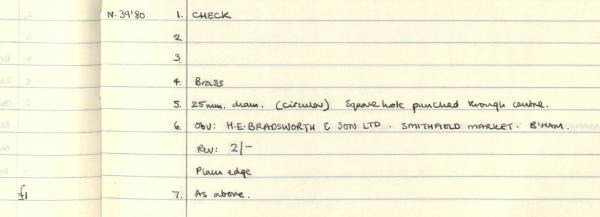 N. 39'80 1. CHECK
2
3
4. Brass
5. 25mm. diam. (circular) Square hole punched through centre.
6. Obv: H.E. BRADSWORTH & SON LTD. SMITHFIELD MARKET. B'HAM.
Rev: 2/-
Plain edge
£1 7. As above.